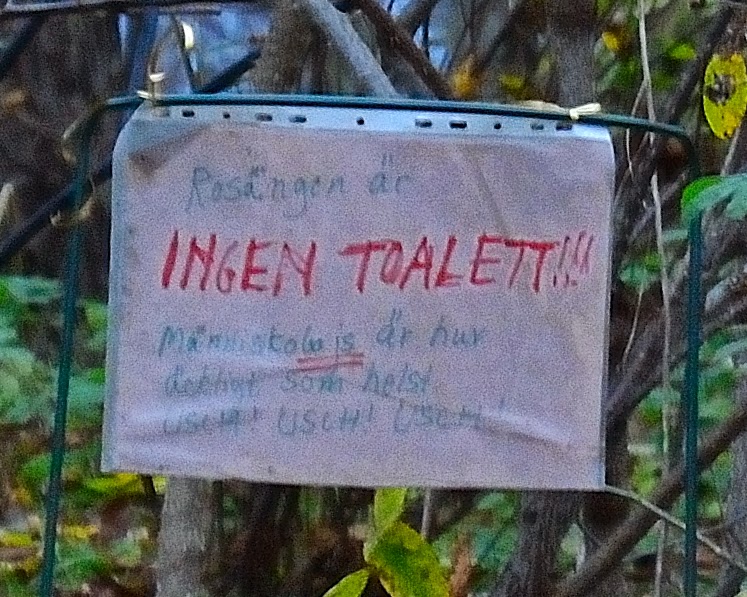 Rosängen är
INGEN TOALETT!!!
Människobajs är hur
äckligt som helst
USCH! USCH! USCH!